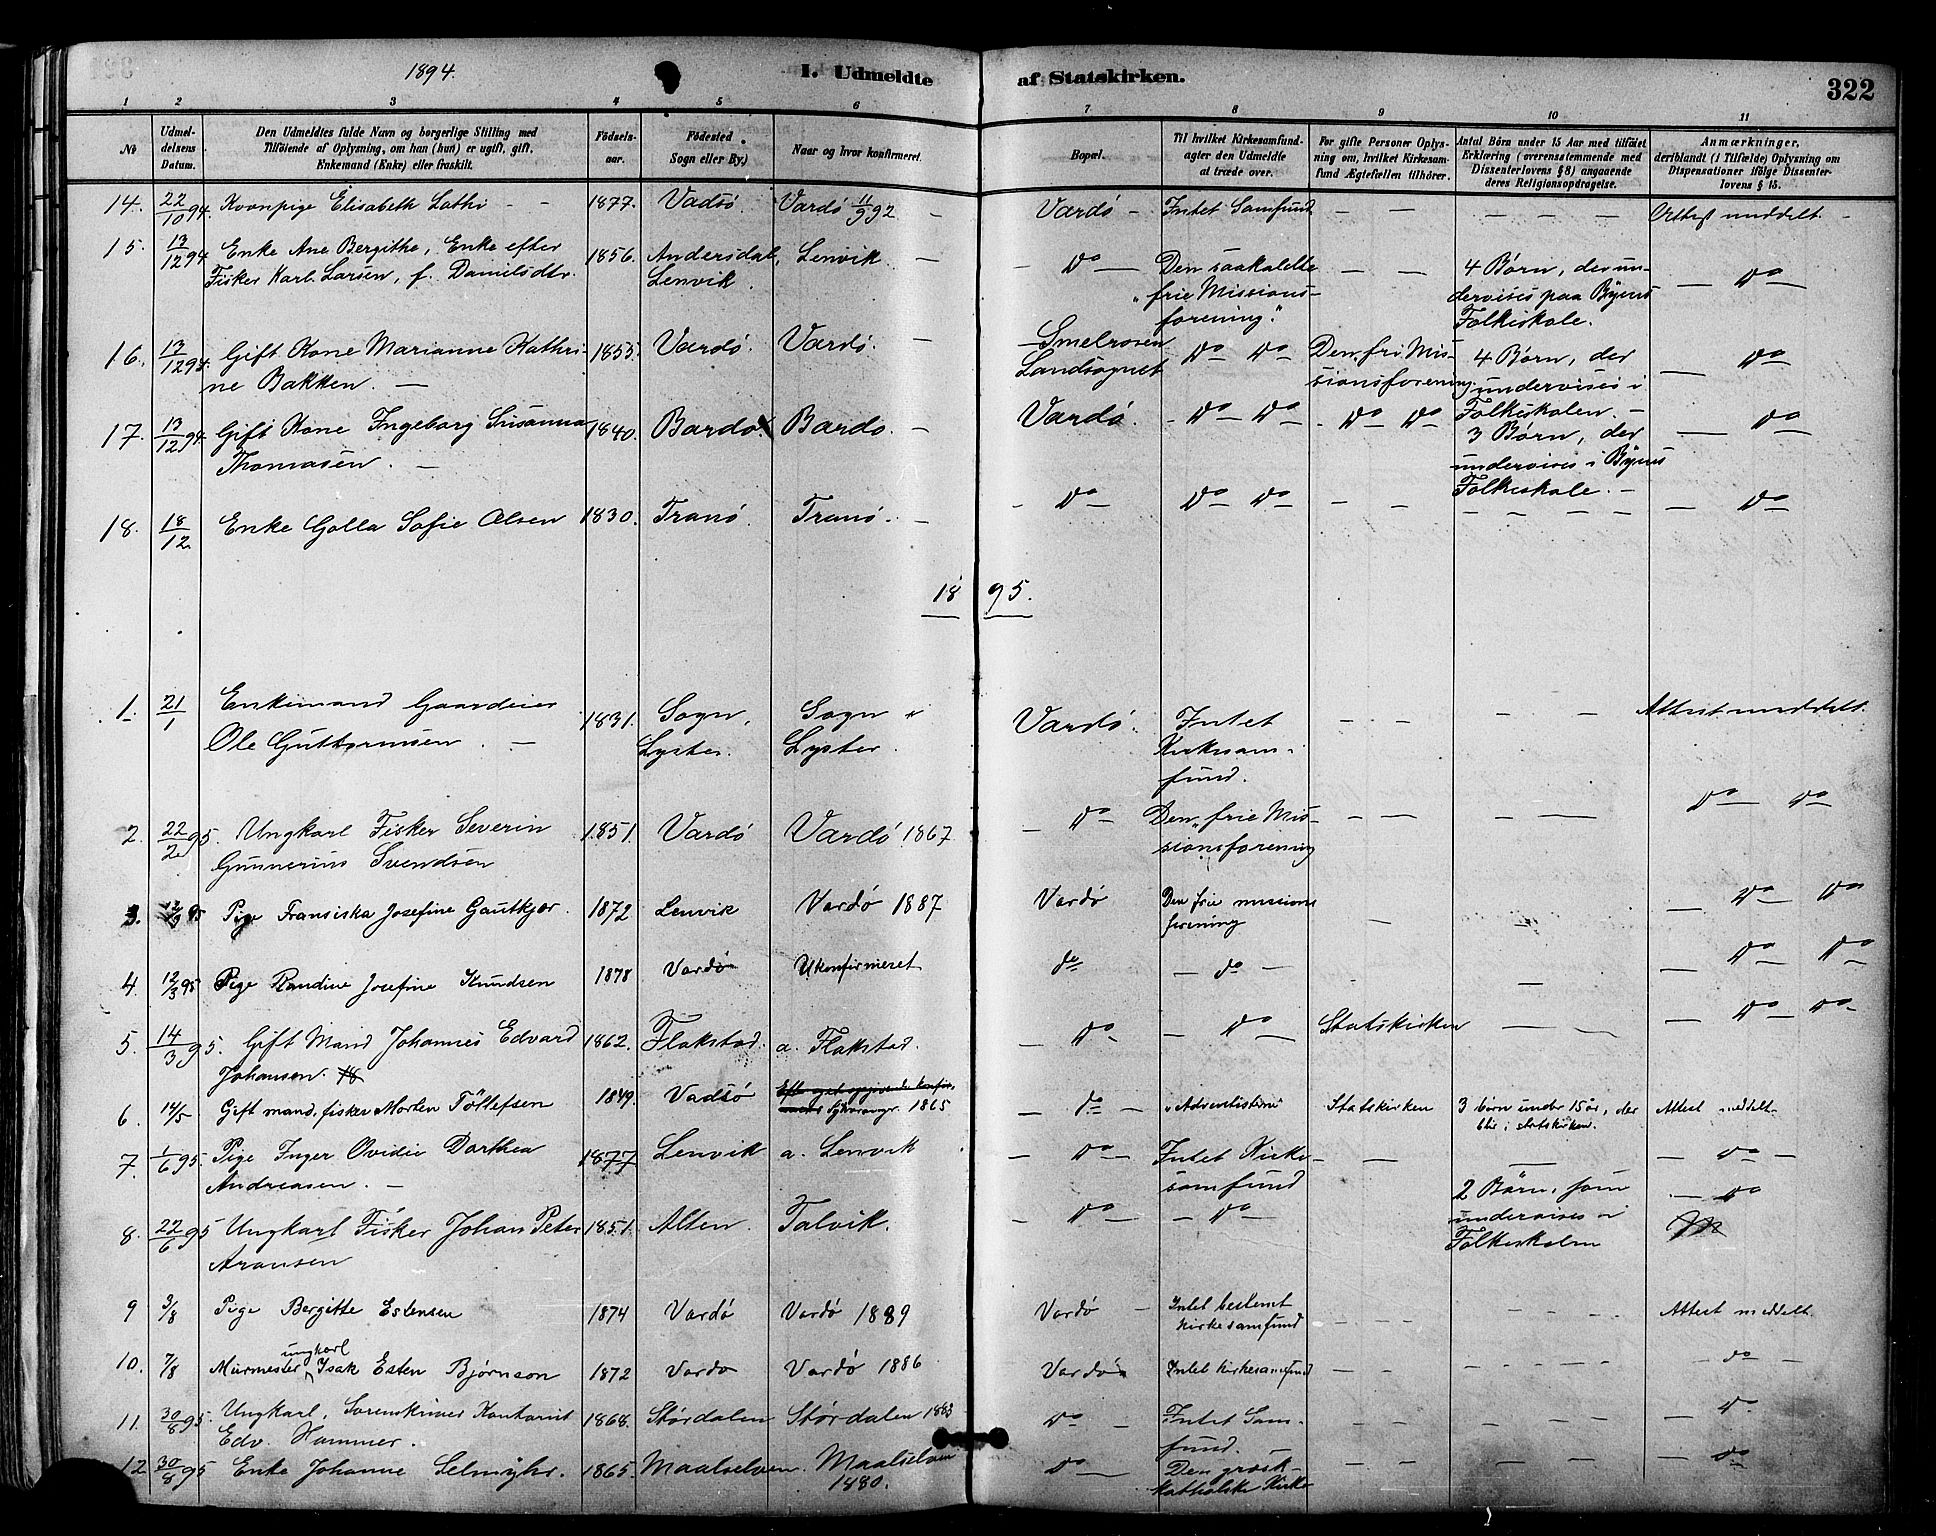 1894.
I. Udmeldte af Statskirken.
322
1 2 3 4 5 6 7 8 9 10 11
No
Udmel-
delsens
Datum.
Den Udmeldtes fulde Navn og borgerlige Stilling med
Tilföiende af Oplysning, om han (hun) er ugift, gift,
Enkemand (Enke) eller fraskilt.
Födsels-
aar.
Födested
Sogn eller By.)
Naar og hvor konfirmeret.
Bopæl.
Til hvilket Kirkesamfund
agter den Udmeldte
at træde over.
For gifte Personer Oplys-
ning om, hvilket Kirkesam-
fund Ægtefællen tilhörer.
Antal Börn under 15 Aar med tilföiet
Erklæring (overensstemmende med
Dissenterlovens § 8) angaaende
deres Religionsopdragelse.
Anmærkninger,
deriblandt (i Tilfælde) Oplysning om
Dispensationer ifölge Dissenter-
lovens § 15.
14. 22/10 94. Kvænpige Elisabeth Lathi - - 1877. Vadsö Vardö 11/9 92 - Vardö - Intet Samfund - - - - - - Attest meddelt -
15. 13/12 94 Enke Ane Bergithe, Enke efter 1856. Andersdal, Lenvik - - Do - Den saakaldte - - 4 Börn, der un-
Fisker Karl Larsen, f. Danielsdtr. Lenvik. "frie Missions- dervises paa Byens - Do -
forening". Folkeskole.
16. 13/12 94. Gift Kone Marianne Kathri- 1855. Vardö. Vardö. - Smelroren Do Do Den fri Mis- 4 Börn, der Do
ne Bakken. - Landsognet sionsforening. undervises i
Folkeskolen. -
17. 13/12 94. Gift Kone Ingeborg Susanna 1840. Bardo. Bardo. - Vardö. - Do Do - Do Do 3 Börn, der - Do
Thomasen. - undervises i Byens
Folkeskole. -
18. 18/12 Enke Golla Sofie Olsen 1830. Tranö. Tranö. - - Do Do Do - - - - - - - Do -
1895.
1. 21/1 Enkemand Gaardeier 1831. Sogn, Sogn " Vardö. Intet - - - - Attest meddelt.
Ole Guttormsen. - Lyster. Lyster. Kirkesam-
fund.
2. 22/2 95. Ungkarl Fisker Severin 1851. Vardö Vardö 1867 - Do Den "frie Mis- - - - - Do Do
Gunnerius Svendsen sionsforening
3. 12/3 95 Pige Fransiska Josefine Gautkjær. 1872 Lenvik Vardö 1887 Vardö Den frie missions - - - Do Do
forening
4. 12/3 95 Pige Randine Josefine Knudsen 1878 Vardö Ukonfirmeret do - do - - - Do Do
5. 14/3 95. Gift Mand Johannes Edvard 1862. Flakstad. a. Flakstad. - Do - - Do Statskirken - - Do Do
Johansen.
6. 14/5 Gift mand, fisker Morten Töllefsen 1849. Vadsö 1865 - do - "Adventisterne" Statskirken 3 börn under 15 år, der Attest meddelt.
blir i statskirken.
7. 1/6 95. Pige Inger Ovidie Dorthea 1877 Lenvik a. Lenvik - Do - Intet Kirke- - - - Do -
Andreasen. - samfund
8. 22/6 95 Ungkarl Fisker Johan Peter 1851. Alten. Talvik. - Do - - Do - 2 Börn, som - Do
Aronsen undervises i
Folkeskolen
9 3/8 Pige Bergitte Estensen 1874 Vardö Vardö 1889 Vardö - Intet bestemt - - - - - - Attest meddelt
kirkesamfund
10. 7/8 Murmester ungkarl Isak Esten Bjørnson 1872 Vardo Vardö 1886 Vardö Intet kirkesamfund - - - - - - do -
11. 30/8 95. Ungkarl, Sorenskriver Kontorist 1868. Stördalen Stördalen 1883 Do - Intet Sam- - - - - - Do
Edv. Hammer. fund.
12 30/8 95 Enke Johanne Selmyhr. 1865. Maalselven. Maalselven Do - Den græsk- - - - - - Do
1880. katholske Kirke